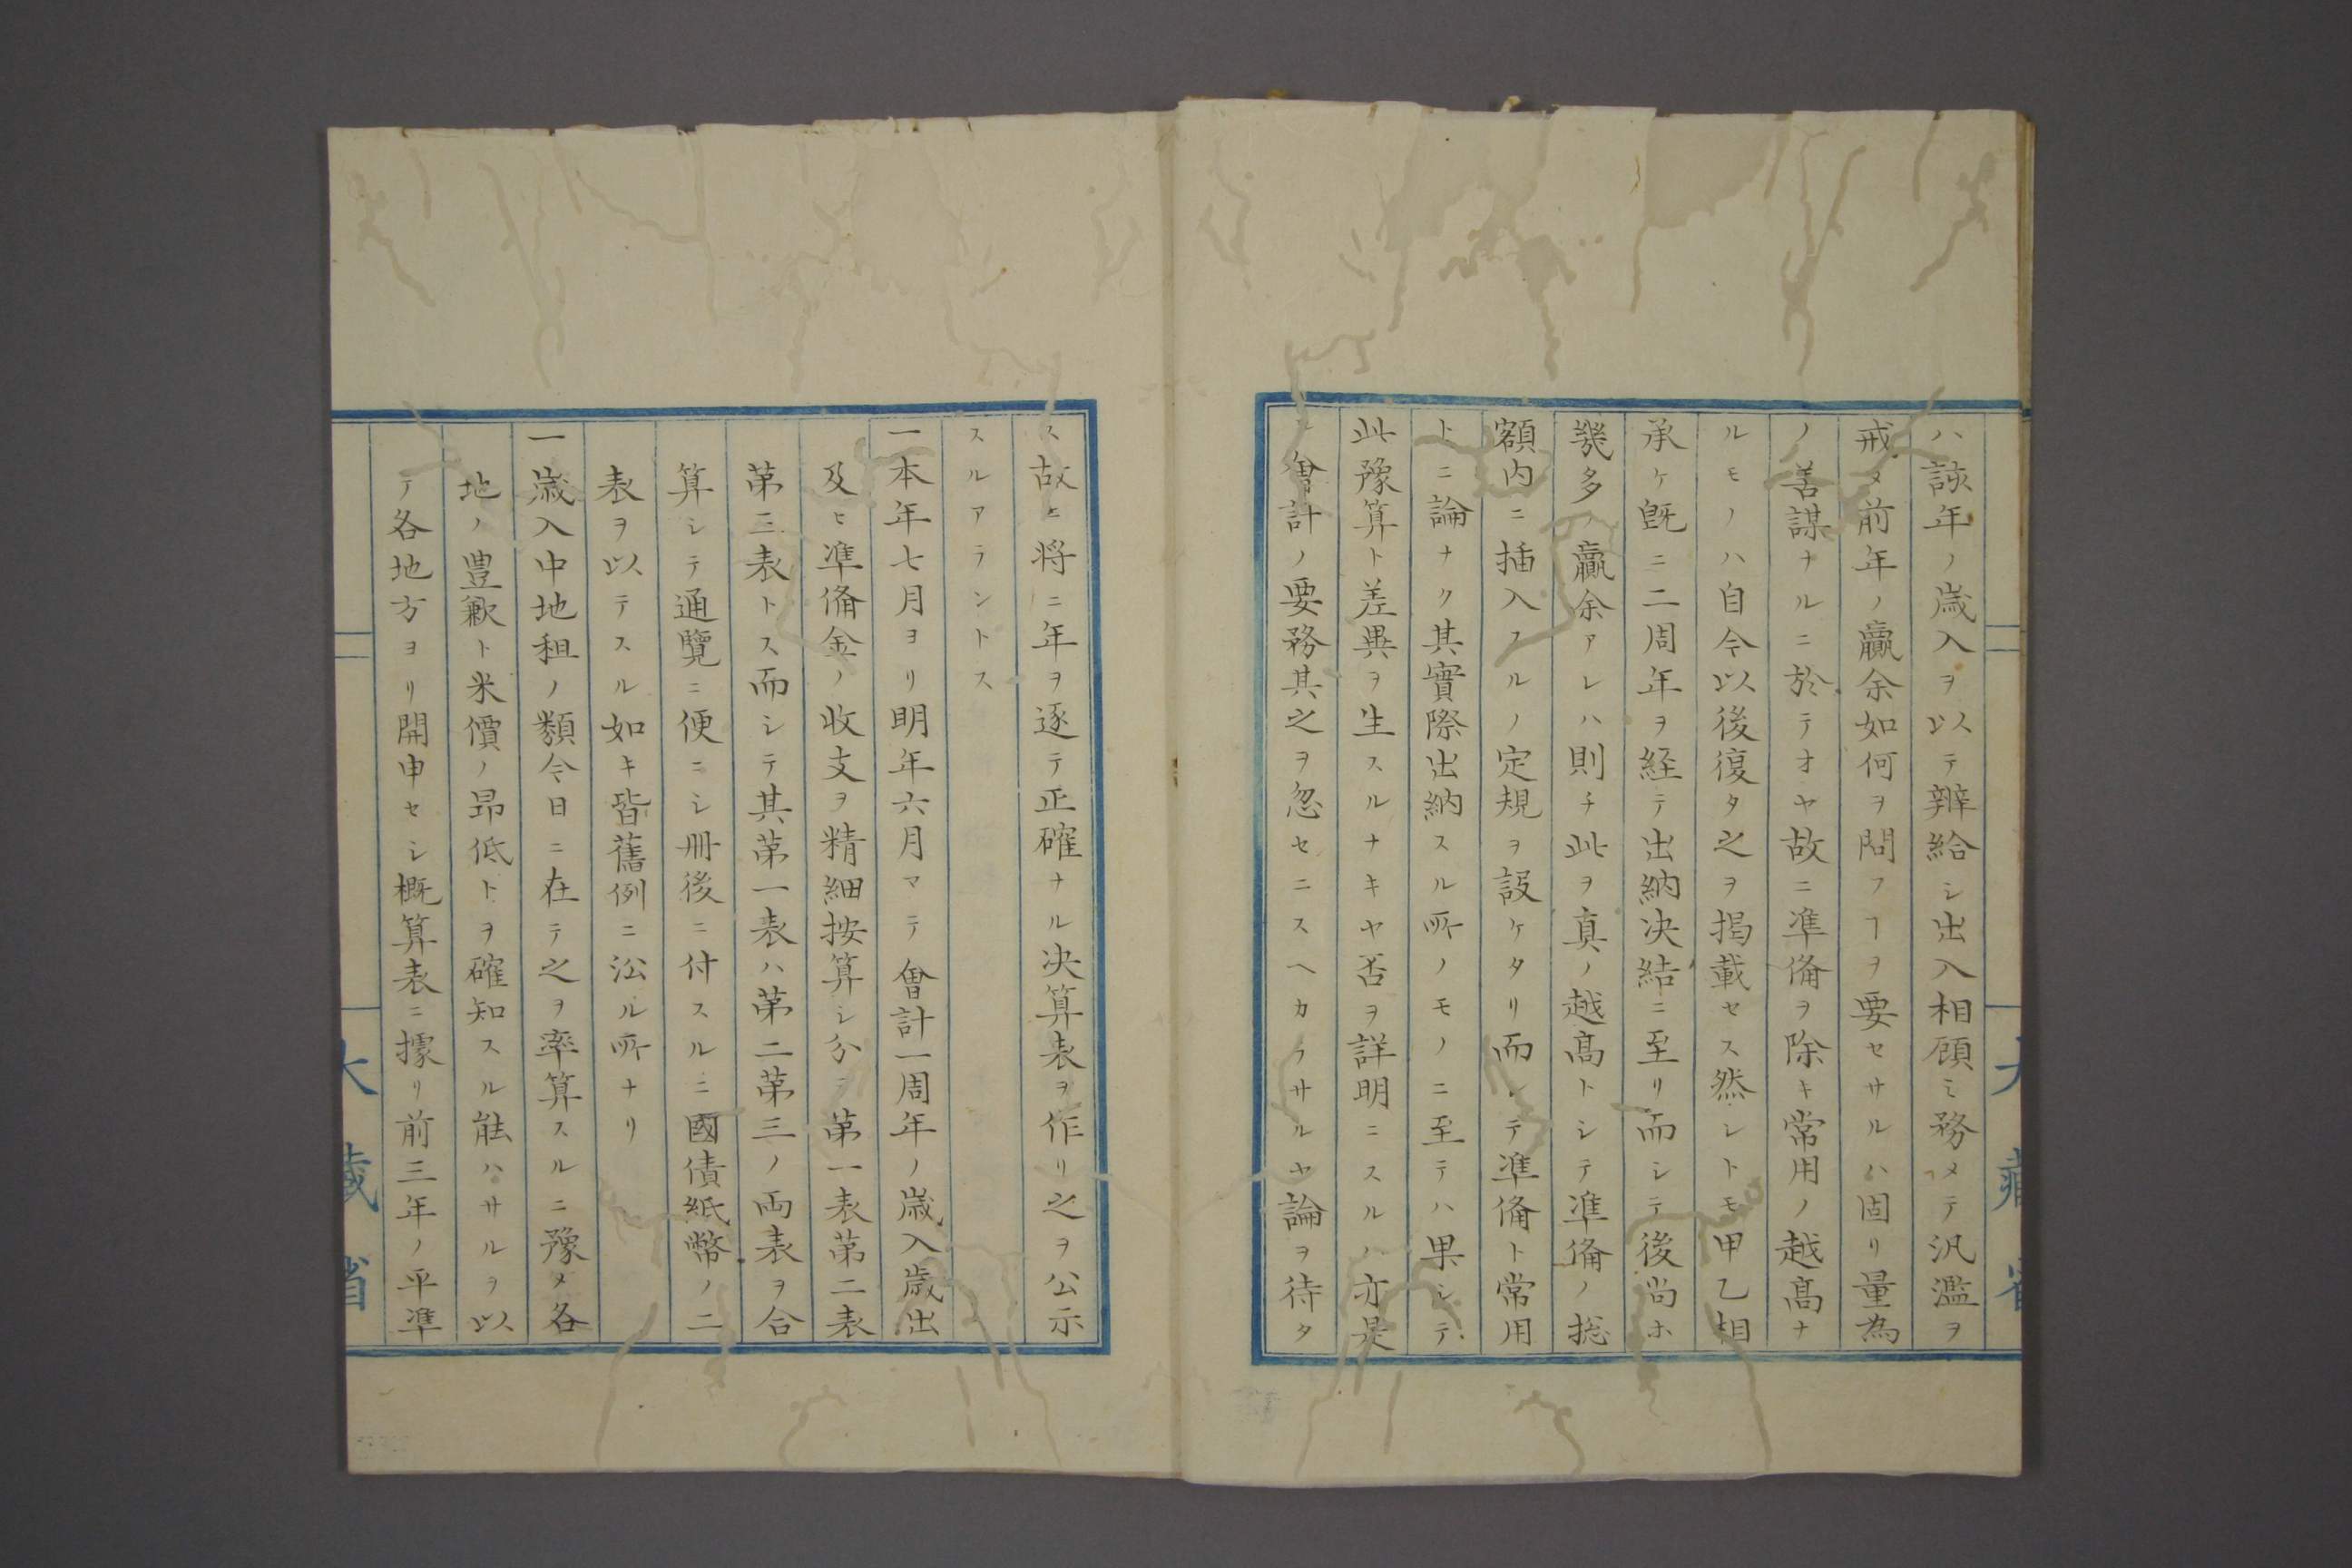 ハ該年ノ歳入ヲ以テ辨給シ出入相顧ミ務メテ汎濫ヲ
戒メ前年ノ贏余如何ヲ問フヿヲ要セサルハ固リ量為
ノ善謀ナルニ於テオヤ故ニ準備ヲ除キ常用ノ越髙ナ
ルモノハ自今以後復タ之ヲ掲載セス然シトモ甲乙相
承ケ既ニ二周年ヲ経テ出納决結ニ至リ而シテ後尚ホ
幾多ノ贏余アレハ則チ此ヲ真ノ越髙トシテ準備ノ揔
額内ニ插入スルノ定規ヲ設ケタリ而シテ準備ト常用
トニ論ナク其實際出納スル所ノモノニ至テハ果シテ
此豫算ト差異ヲ生スルナキヤ否ヲ詳明ニスルハ亦是
レ會計ノ要務其之ヲ忽セニスヘカラサルヤ論ヲ待タ
大藏省
ス故ニ将ニ年ヲ逐テ正確ナル决算表ヲ作リ之ヲ公示
スルアラントス
一本年七月ヨリ明年六月マテ會計一周年ノ歳入歳出
及ヒ準備金ノ收支ヲ精細按算シ分テ第一表第二表
第三表トス而シテ其第一表ハ第二第三ノ両表ヲ合
算シテ通覽ニ便ニシ冊後ニ付スルニ國債紙幣ノ二
表ヲ以テスル如キ皆舊例ニ沿ル所ナリ
一歳入中地租ノ類今日ニ在テ之ヲ率算スルニ豫メ各
地ノ豊歉ト米價ノ昂低トヲ確知スル能ハサルヲ以
テ各地方ヨリ開申セシ概算表ニ據リ前三年ノ平準
大藏省